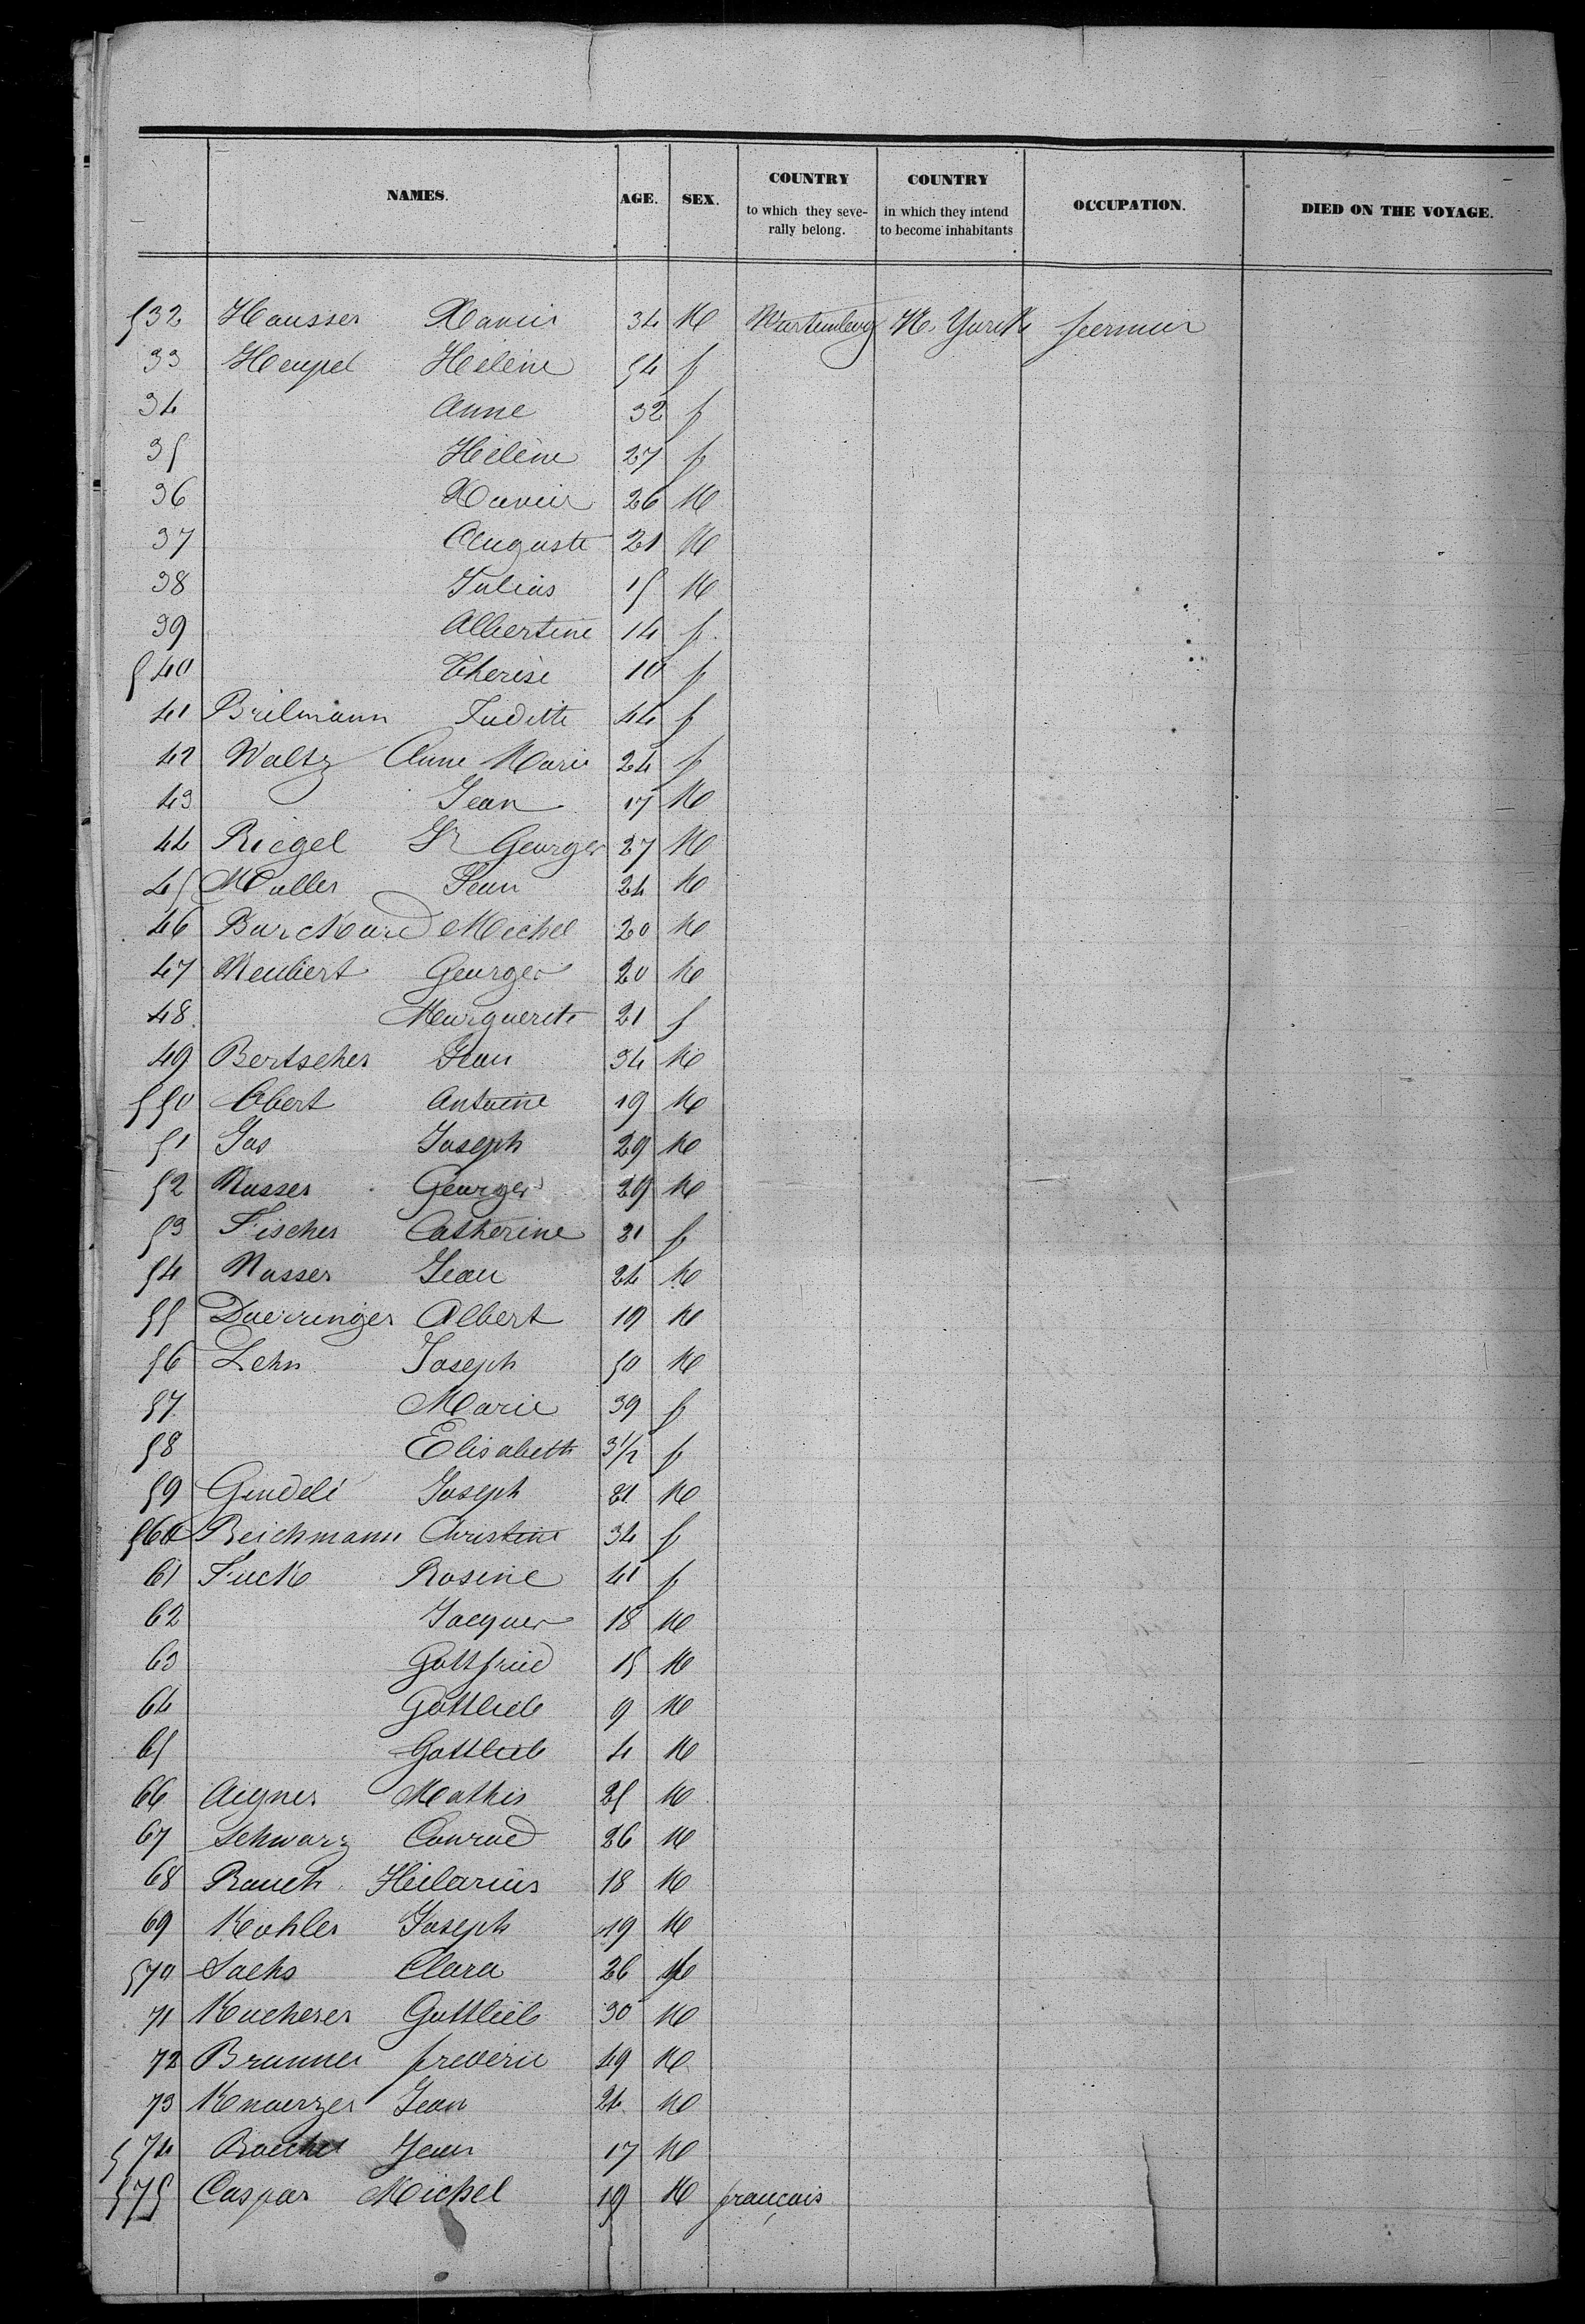 NAMES. AGE. SEX. COUNTRY to which they seve- rally belong. COUNTRY in which they intend to become inhabitants OCCUPATION. DIED ON THE VOYAGE.
532 Hausser Xavier 34 M Wurtemberg N. York fermier
33 Heupel Hélène 54 f
34 Anne 32 f
35 Hélène 27 f
36 Xavier 26 M
37 Auguste 21 M
38 Julius 15 M
39 Albertine 14 f
540 Therèse 10 f
41 Brilmann Judith 44 f
42 Waltz Anne Marie 24 f
43 Jean 17 M
44 Riegel Jn Georges 27 M
45 Muller Jean 24 M
46 Burckard Michel 20 M
47 Neubert Georges 20 M
48 Marguerite 21 f
49 Bertscher Jean 34 M
550 Obert Antoine 19 M
51 Jos Joseph 29 M
52 Nusser Georges 29 M
53 Fischer Catherine 21 f
54 Nusser Jean 24 M
55 Duerringer Albert 19 M
56 Lehn Joseph 50 M
57 Marie 39 f
58 Elisabeth 3 1/2 f
59 Gindelé Joseph 21 M
560 Reichmann Christine 34 f
61 Fuck Rosine 41 f
62 Jacques 18 M
63 Gottfried 15 M
64 Gottlieb 9 M
65 Gottlieb 4 M
66 Aigner Mathis 25 M
67 Schwarz Conrad 26 M
68 Rauch Hilarius 18 M
69 Kohler Joseph 19 M
570 Sachs Clara 26 f
71 Kucherer Gottlieb 30 M
72 Brunner frederic 49 M
73 Knoerzer Jean 24 M
574 Jean 17 M
575 Caspar Michel 19 M français